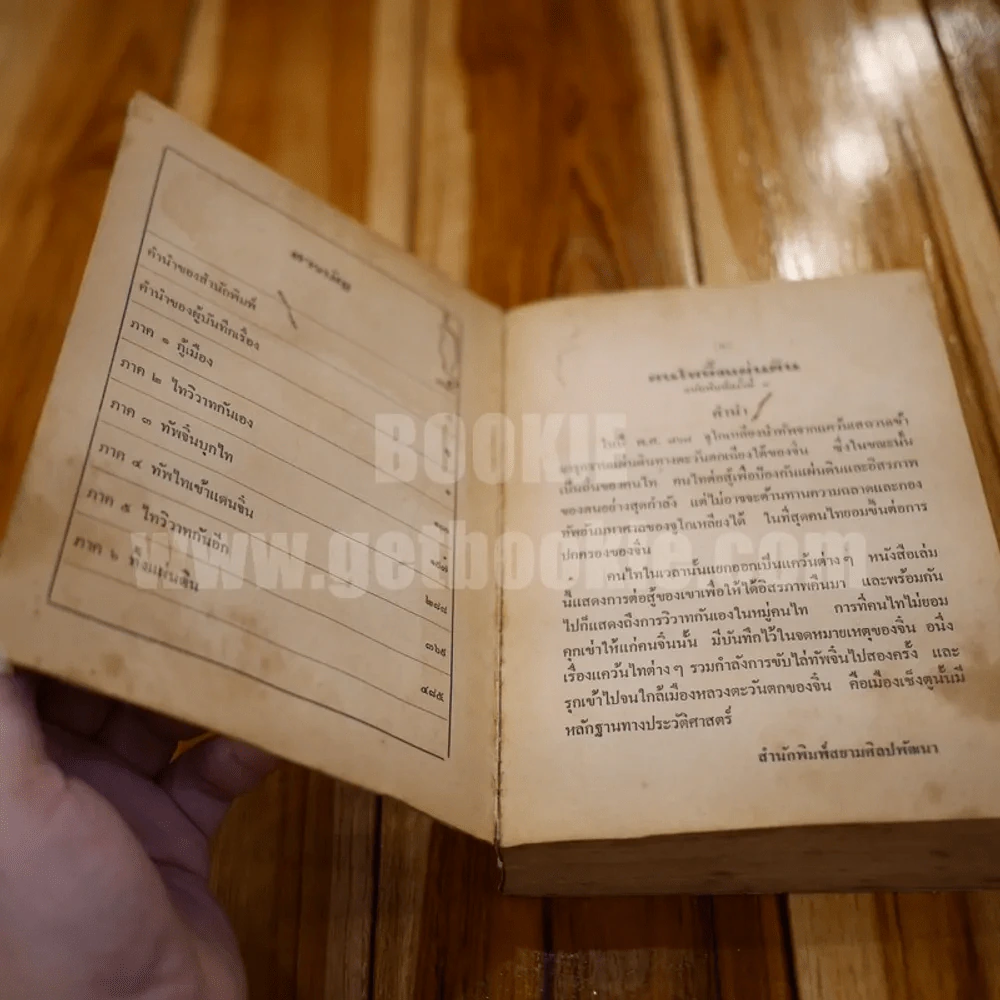 สารบัญ
คำนำของสำนักพิมพ์
คำนำของผู้บันทึกเรื่อง
ภาค ๑ กู้เมือง
ภาค ๒ ไทวิวาทกันเอง
ภาค ๓ ทัพจิ๋นบุกไท
ภาค ๔ ทัพไทเข้าแดนจิ๋น
ภาค ๕ ไทวิวาทกันอีก
ภาค ๖ ทิ้งแผ่นดิน
๒๘๘
๓๖๕
๔๘๕
คนไททิ้งแผ่นดิน
คำนำ
ในปี พ.ศ. ๗๖๘ จูโกเหลียงนำทัพจากแคว้นเสฉวนเข้า
มารุกรานแผ่นดินทางตะวันตกเฉียงใต้ของจิ๋น ซึ่งในขณะนั้น
เป็นถิ่นของคนไท คนไทต่อสู้เพื่อป้องกันแผ่นดินและอิสรภาพ
ของตนอย่างสุดกำลัง แต่ไม่อาจจะต้านทานความฉลาดและกอง
ทัพอันมหาศาลของจูโกเหลียงได้ ในที่สุดคนไทยอมขึ้นต่อการ
ปกครองของจิ๋น
คนไทในเวลานั้นแยกออกเป็นแคว้นต่าง ๆ หนังสือเล่ม
นี้แสดงการต่อสู้ของเขาเพื่อให้ได้อิสรภาพคืนมา และพร้อมกัน
ไปก็แสดงถึงการวิวาทกันเองในหมู่คนไท การที่คนไทไม่ยอม
คุกเข่าให้แก่คนจิ๋นนั้น มีบันทึกไว้ในจดหมายเหตุของจิ๋น อนึ่ง
เรื่องแคว้นไทต่าง ๆ รวมกำลังการขับไล่ทัพจิ๋นไปสองครั้ง และ
รุกเข้าไปจนใกล้เมืองหลวงตะวันตกของจิ๋น คือเมืองเช็งตูนั้นมี
หลักฐานทางประวัติศาสตร์
สำนักพิมพ์สยามศิลปพัฒนา
BOOKIE
www.getbookie.com